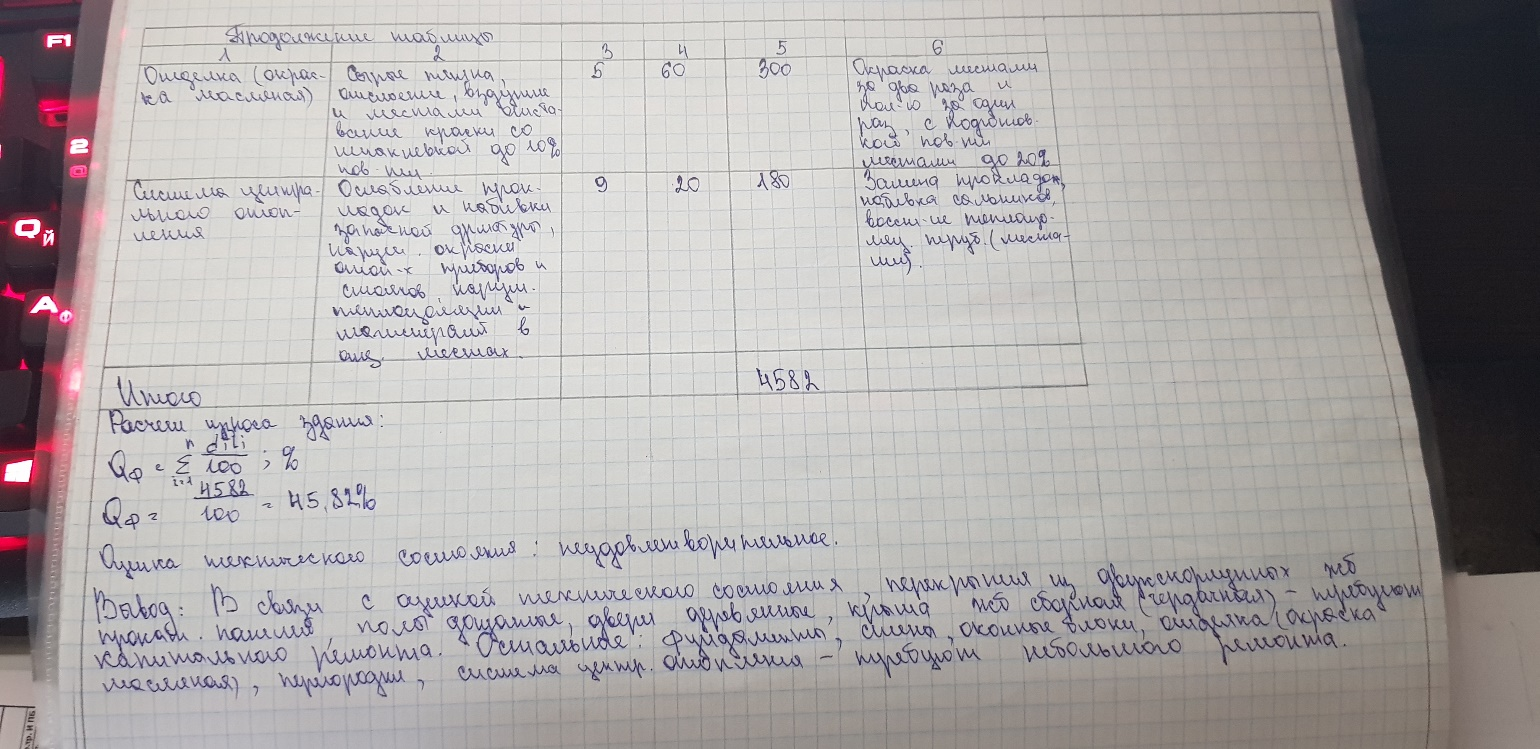 Продолжение таблицы
1 2 3 4 5 6
Отделка (окрас-
ка масляная)
Сырые пятна,
отслоение, вздутие
и местами отста-
вание краски со
шпаклевкой до 10%
пов-ти
5
60
300
Окраска местами
за два раза и
пол-ю за один
раз, с подготов-
кой пов-ти
местами до 20%
Система центра-
льного отоп-
ления
Ослабление прок-
ладок и набивки
запорной арматуры,
наруш. окраски
отоп-х приборов и
стояков, наруш.
теплоизоляции и
магистралей в
отд. местах.
9
20
180
Замена прокладок,
набивка сальников,
восст-ие теплоизо-
ляц. труб.(места-
ми).
Итого
4582
Расчет износа здания:
Qф = n Σ i=1 dili / 100 ; %
Qф = 4582 / 100 = 45,82%
Оценка технического состояния: неудовлетворительное.
Вывод: В связи с оценкой технического состояния, перекрытия из двухскорлупных жб
прокатн. панелей, полы дощатые, двери деревянные, крыша жб сборная (чердачная) - требуют
капитального ремонта. Остальное: фундаменты, стены, оконные блоки, отделка (окраска
масляная), перегородки, система центр. отопления - требуют небольшого ремонта.
F1
2
@
Q Й
A Ф